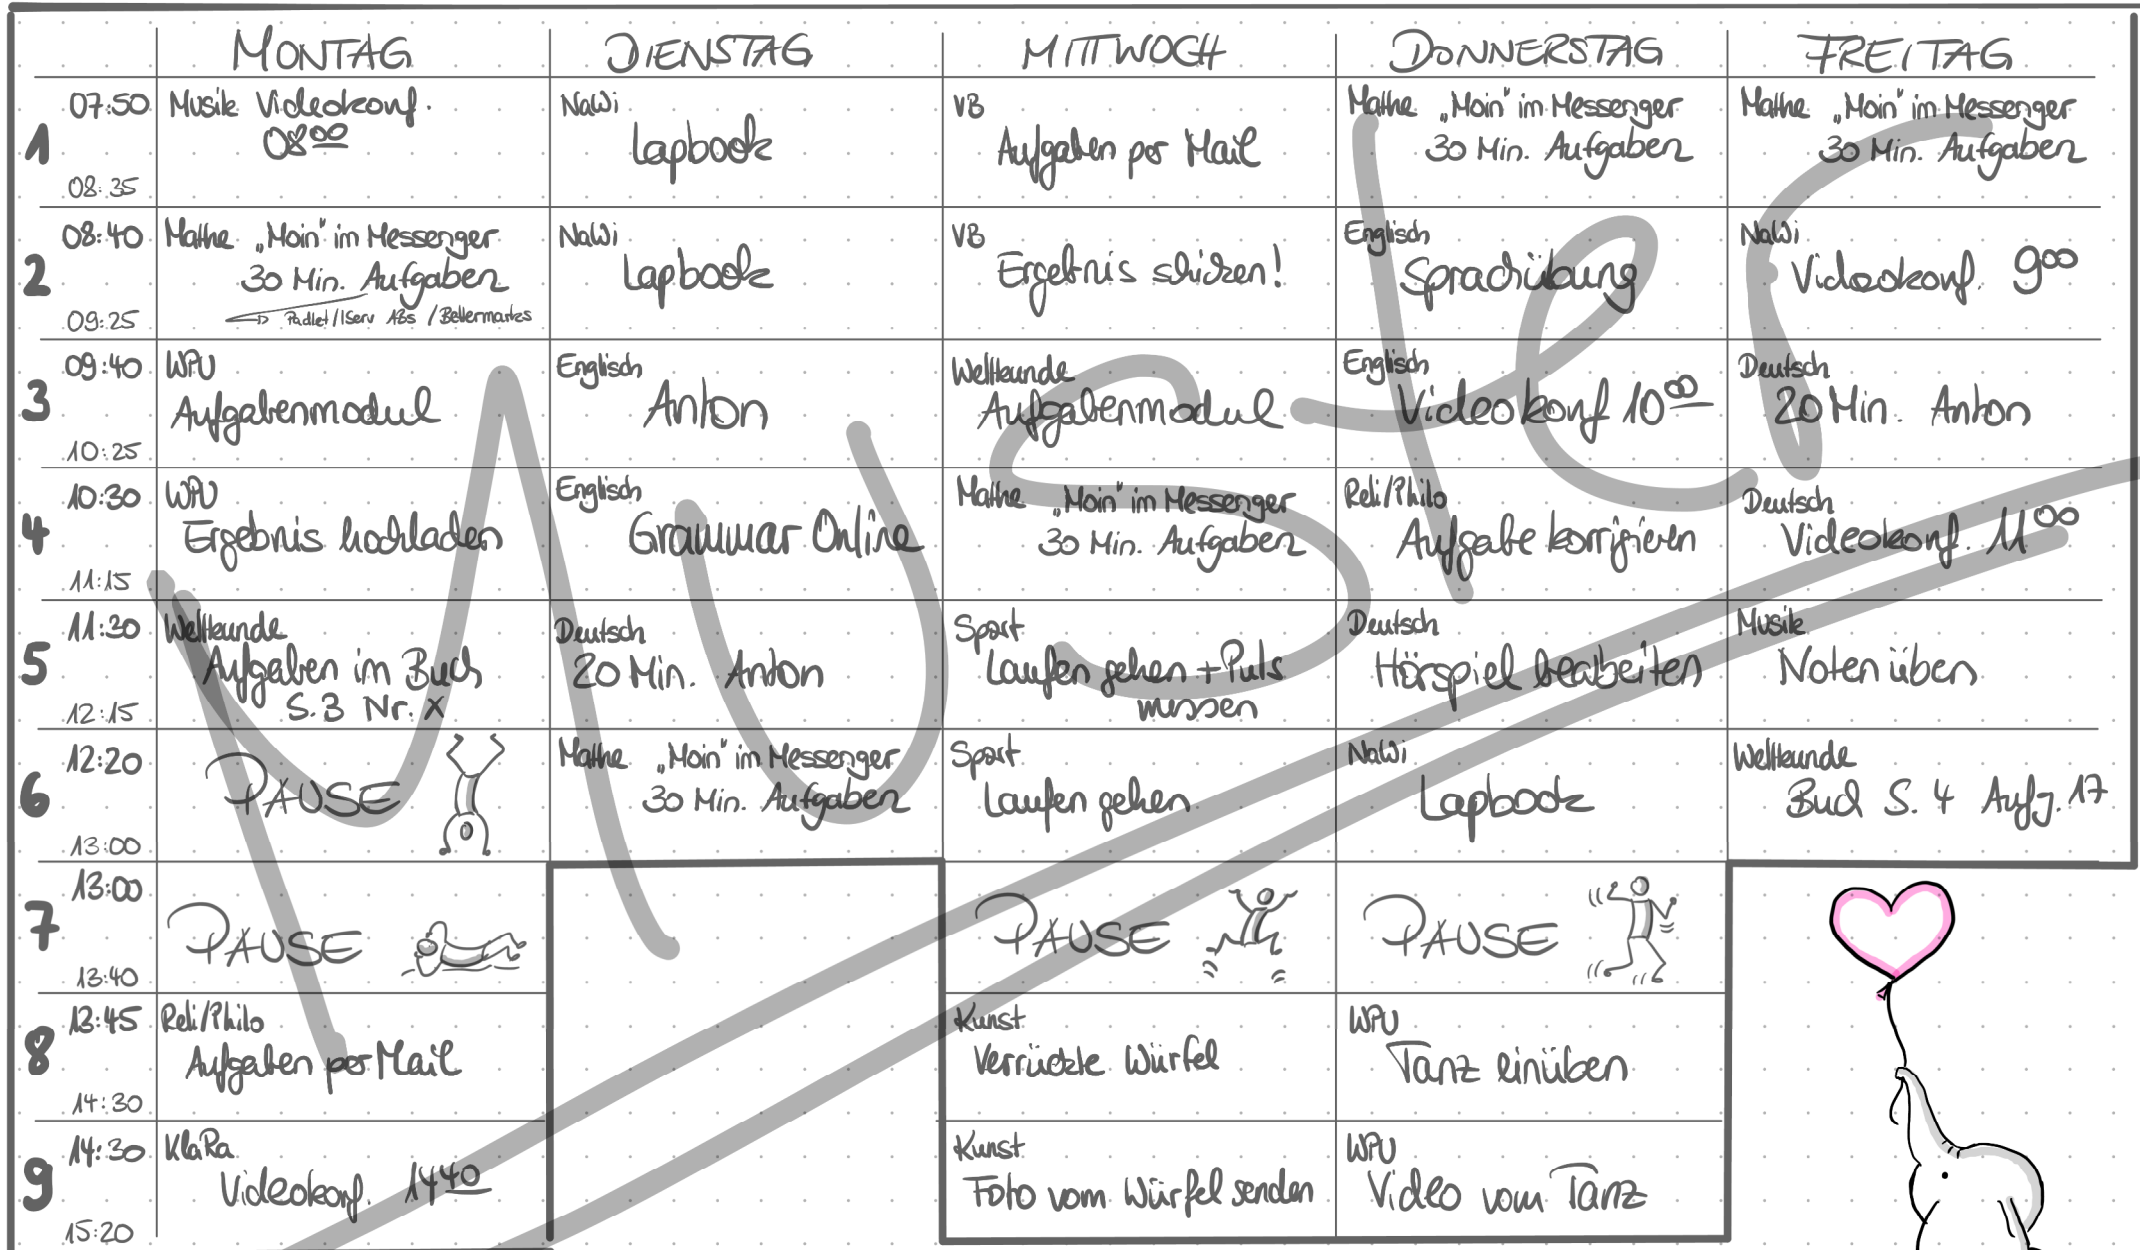 MONTAG DIENSTAG MITTWOCH DONNERSTAG FREITAG
1
07:50
08:35
Musik Videokonf.
08⁰⁰
NaWi
Lapbook
VB
Aufgaben per Mail
Mathe „Moin“ im Messenger
30 Min. Aufgaben
Mathe „Moin“ im Messenger
30 Min. Aufgaben
2
08:40
09:25
Mathe „Moin“ im Messenger
30 Min. Aufgaben
Padlet/IServ ABs / Bettermarks
NaWi
Lapbook
VB
Ergebnis schicken!
Englisch
Sprachübung
NaWi
Videokonf. 9⁰⁰
3
09:40
10:25
WPU
Aufgabenmodul
Englisch
Anton
Weltkunde
Aufgabenmodul
Englisch
Videokonf 10⁰⁰
Deutsch
20 Min. Anton
4
10:30
11:15
WPU
Ergebnis hochladen
Englisch
Grammar Online
Mathe „Moin“ im Messenger
30 Min. Aufgaben
Reli/Philo
Aufgabe korrigieren
Deutsch
Videokonf. 11⁰⁰
5
11:30
12:15
Weltkunde
Aufgaben im Buch
S.3 Nr. X
Deutsch
20 Min. Anton
Sport
Laufen gehen + Puls
messen
Deutsch
Hörspiel beabeiten
Musik
Noten üben
6
12:20
13:00
PAUSE
Mathe „Moin“ im Messenger
30 Min. Aufgaben
Sport
Laufen gehen
NaWi
Lapbook
Weltkunde
Buch S. 4 Aufg. 17
7
13:00
13:40
PAUSE
PAUSE
PAUSE
8
13:45
14:30
Reli/Philo
Aufgaben per Mail
Kunst
Verrückte Würfel
WPU
Tanz einüben
9
14:30
15:20
KlaRa
Videokonf. 14⁴⁰
Kunst
Foto vom Würfel senden
WPU
Video vom Tanz
Muster